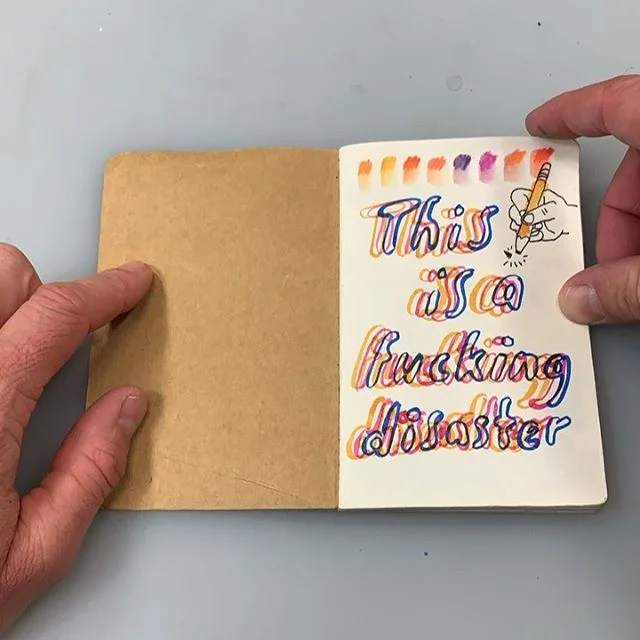 This
is a
fucking
disaster